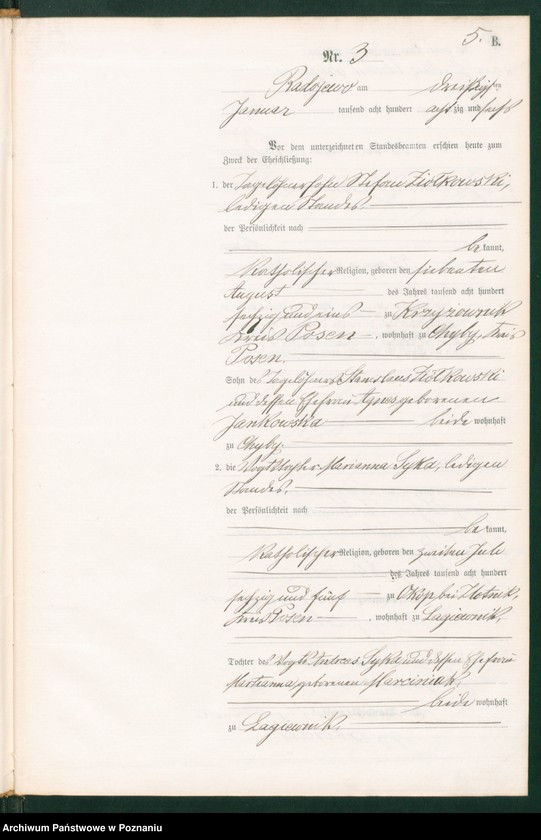 5. B.
Nr. 3
Radojewo am dreißigsten
Januar tausend acht hundert achtzig und sechs
Vor dem unterzeichneten Standesbeamten erschien heute zum
Zweck der Eheschließung:
1. der Tagelöhnersohn Stefan Ziółkowski,
ledigen Standes
der Persönlichkeit nach
bekannt,
katholischer Religion, geboren den siebenten
August des Jahres tausend acht hundert
sechzig und eins zu Krzyżownik
Kreis Posen, wohnhaft zu Chyby, Kreis
Posen.
Sohn des Tagelöhners Stanislaus Ziółkowski
und dessen Ehefrau Agnes geborenen
Jankowska beide wohnhaft
zu Chyby.
2. die Vogttochter Marianna Syka, ledigen
Standes.
der Persönlichkeit nach
bekannt,
katholischer Religion, geboren den zweiten Juli
des Jahres tausend acht hundert
sechzig und fünf zu Okop bei
Kreis Posen, wohnhaft zu Lagiewnik.
Tochter des Vogts Andreas Syka und dessen Ehefrau
Marianna geborenen Marciniak
beide wohnhaft
zu Lagiewnik.
Archiwum Państwowe w Poznaniu